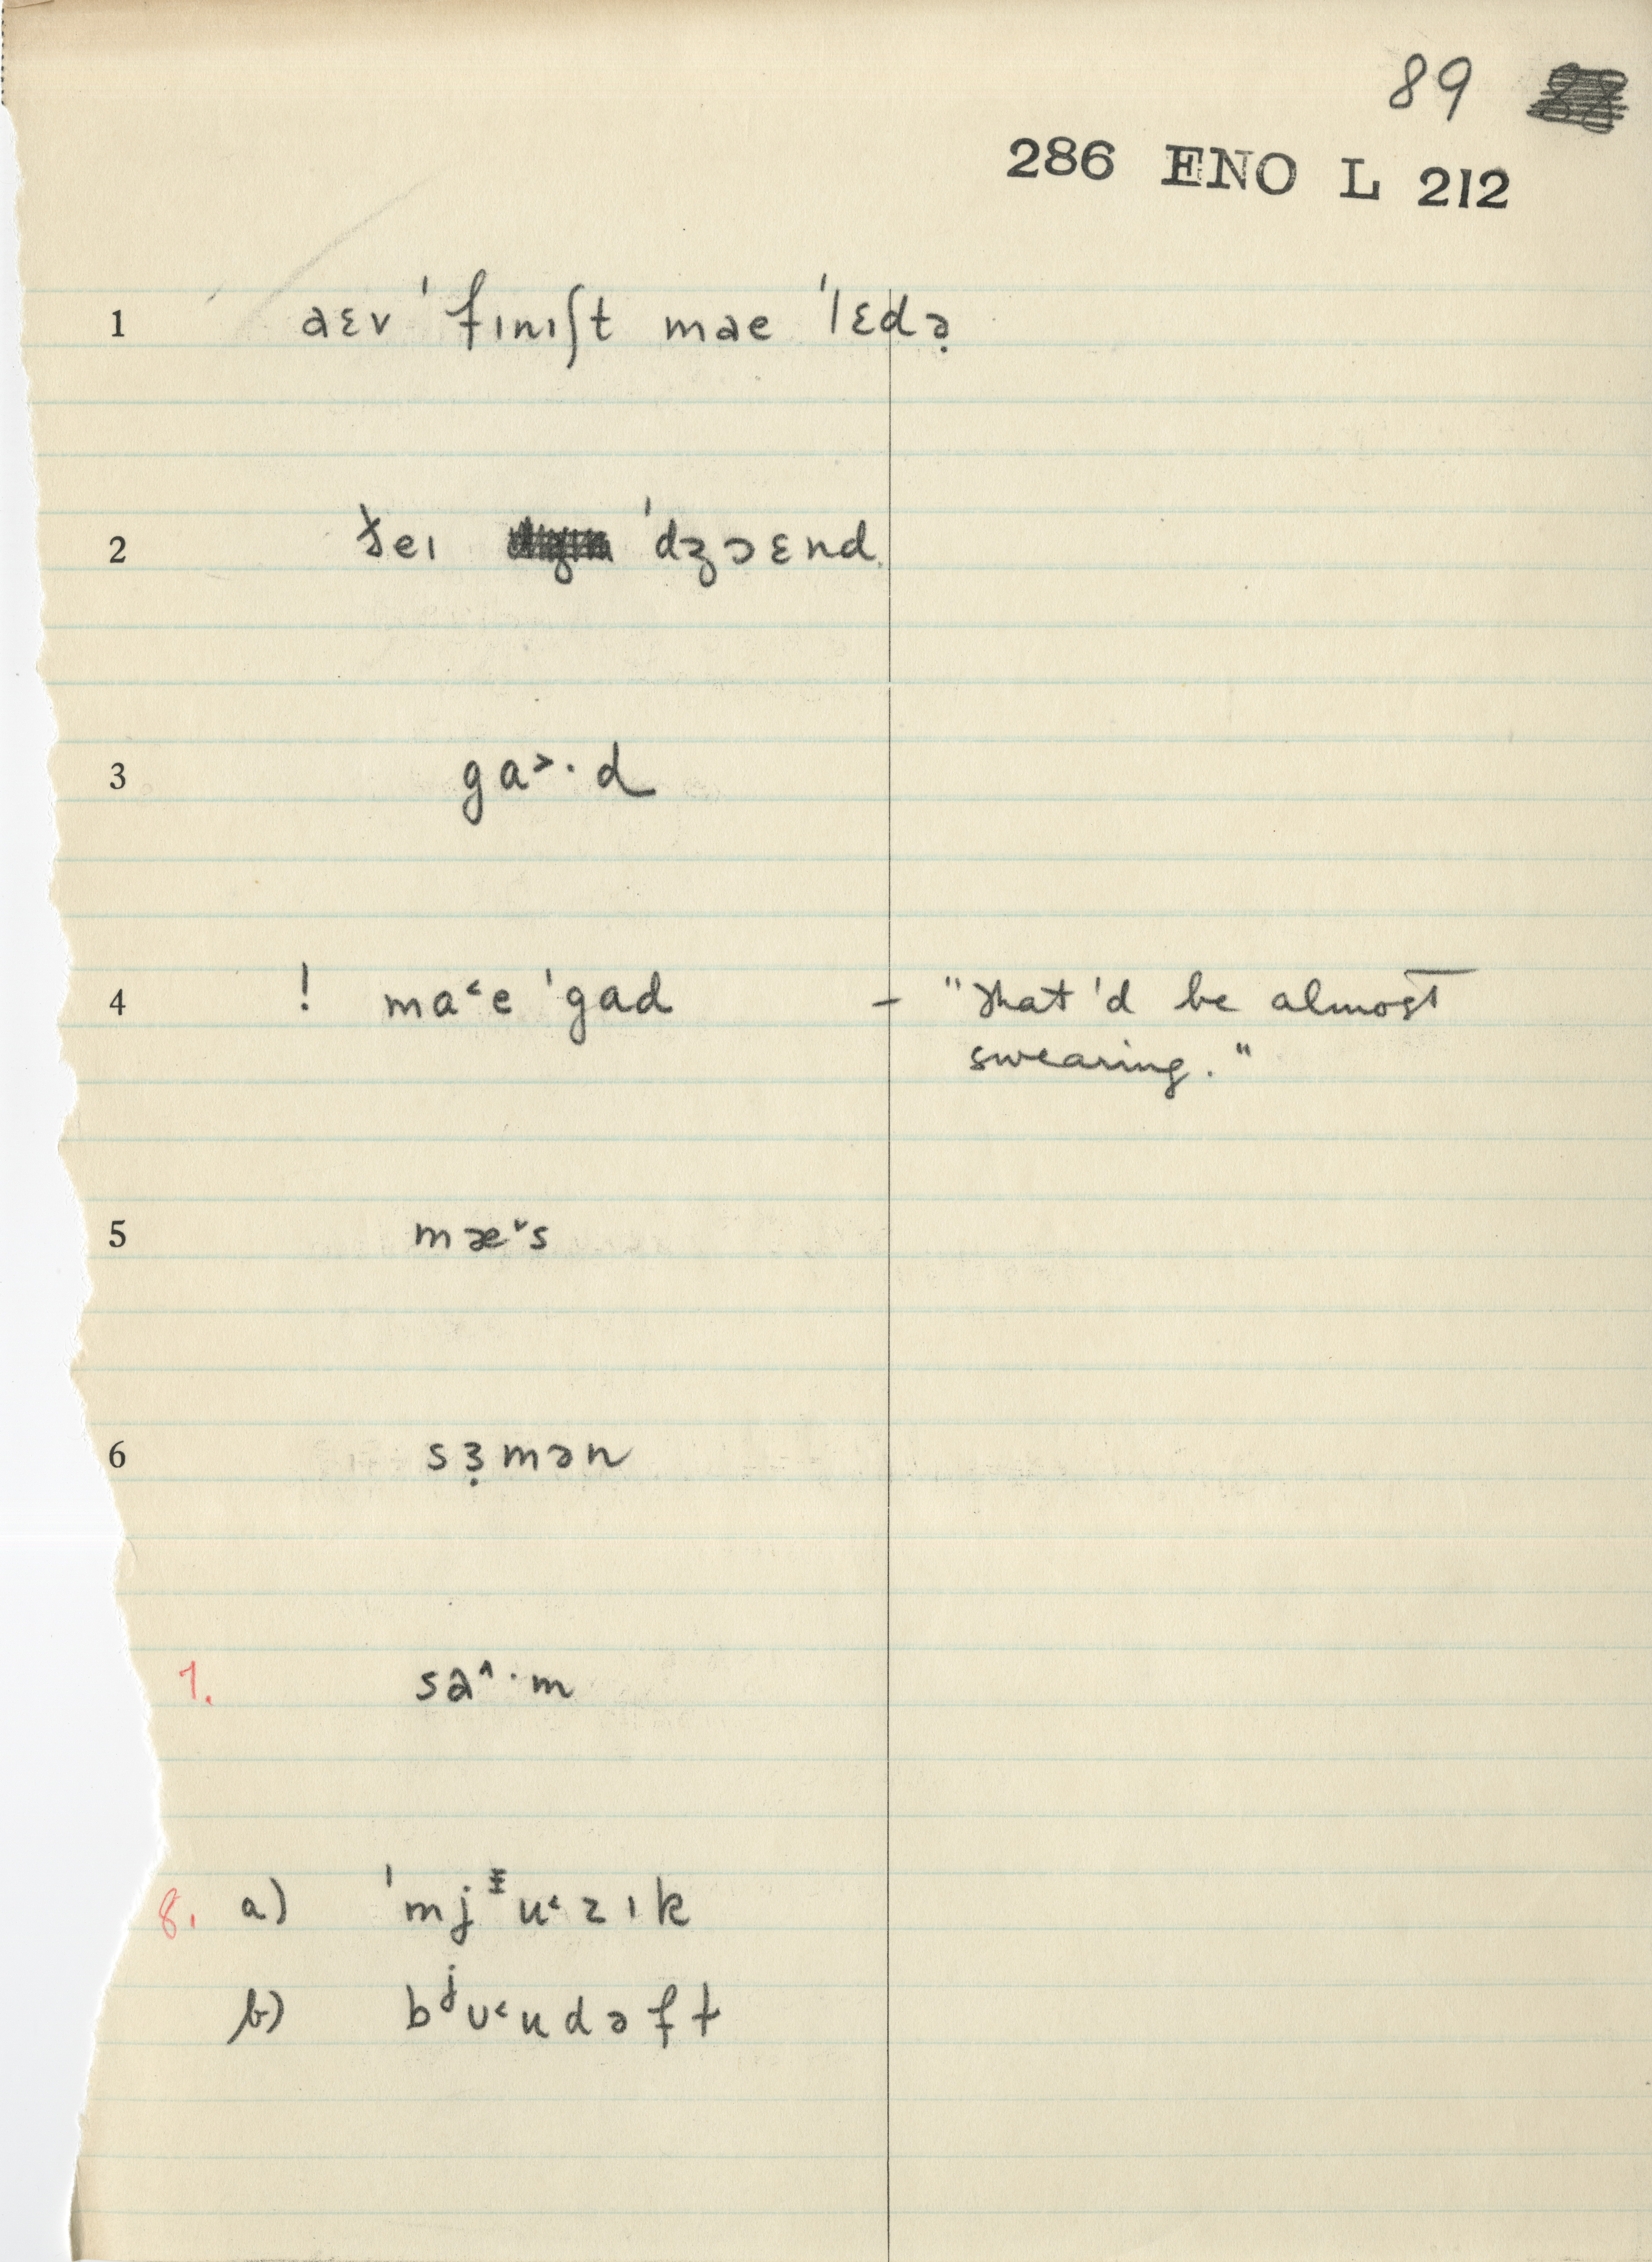 89
286 ENO L 212
1 aɛv ˈfɪnɪʃt mae ˈlɛdə̣
2 ðeɪ ˈdʒɔɛnd
3 ga˃·d
4 ! ma˂e ˈgad – "That'd be almost
swearing."
5 mæ˅s
6 sɜ̣mən
7. sa˄·m
8. a) ˈmjᵻu˂zɪk
b) bʲʊ˂udəft